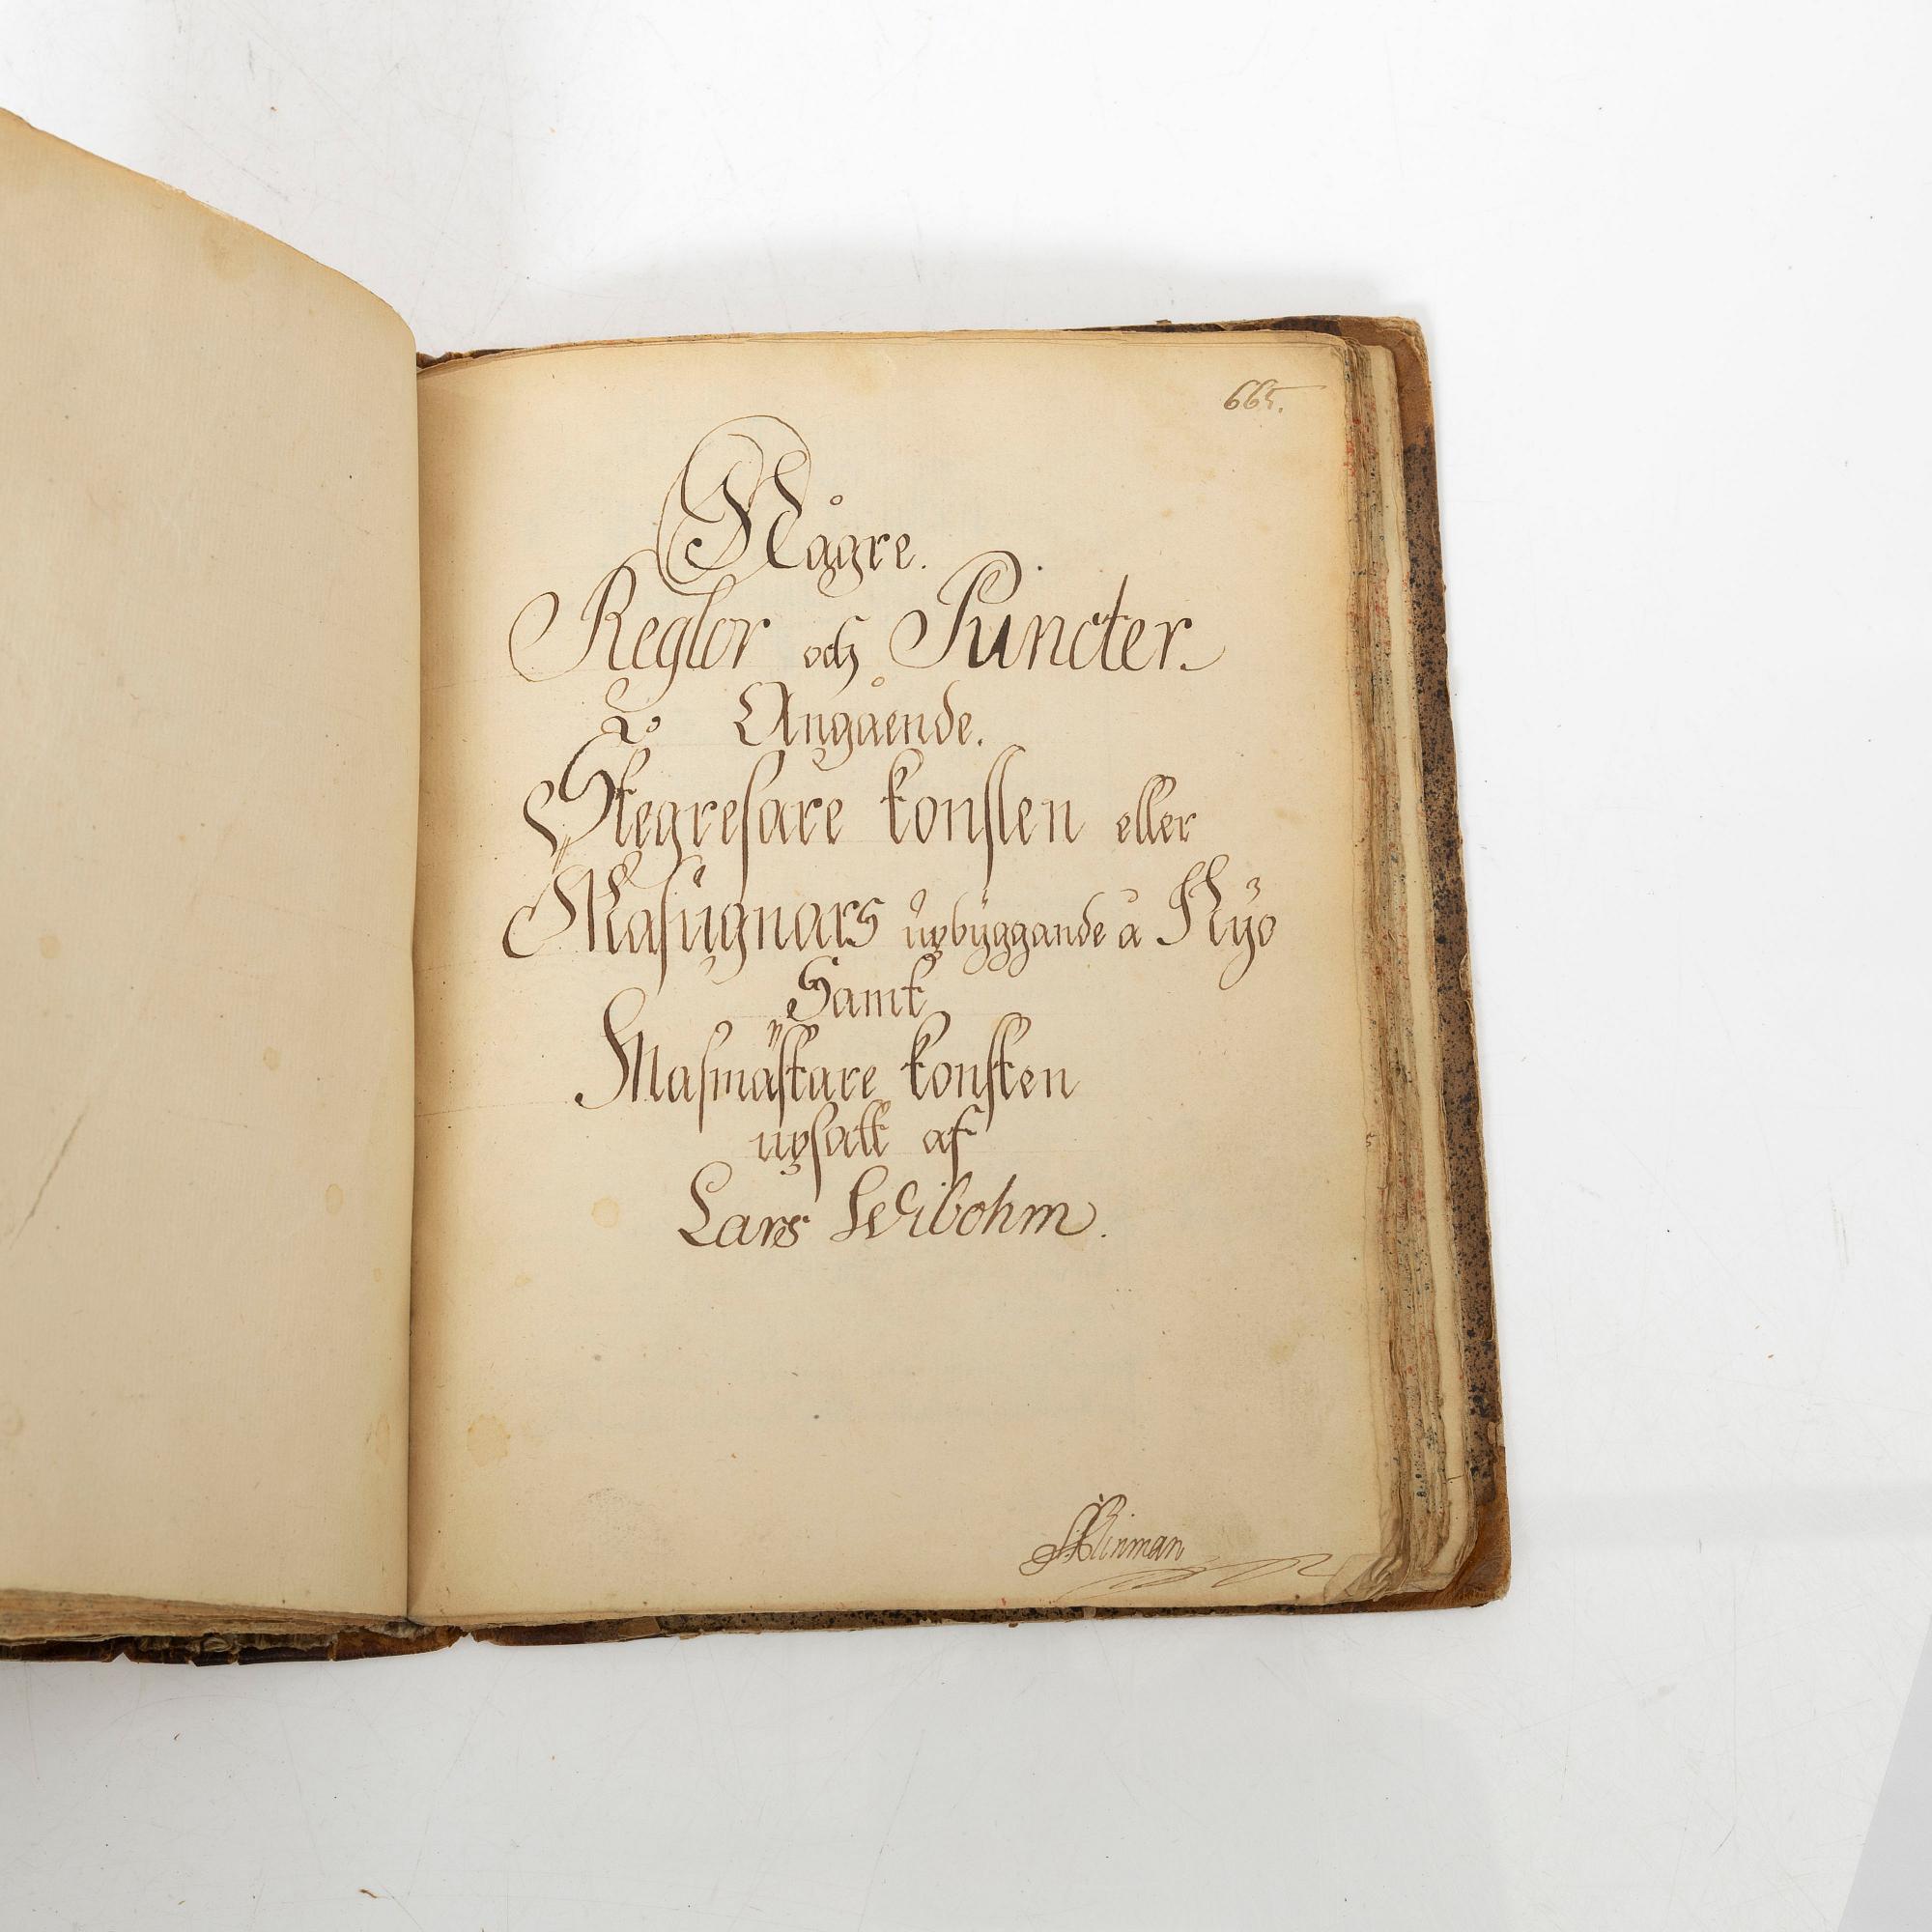 665.
Någre.
Reglor och Puncter.
Angående.
Stegresare konsten eller
Masugnars upbyggande å Nyo
Samt
Masmästare konsten
upsatt af
Lars Wibohm.
Rinman